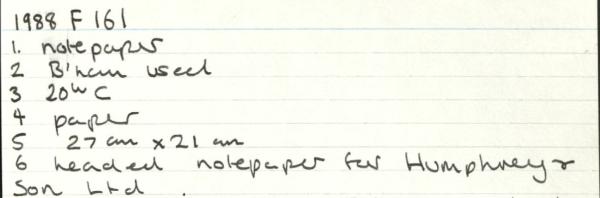 1988 F 161
1. notepaper
2 B'ham used
3 20th C
4 paper
5 27 cm x 21 cm
6 headed notepaper for Humphrey &
Son Ltd.